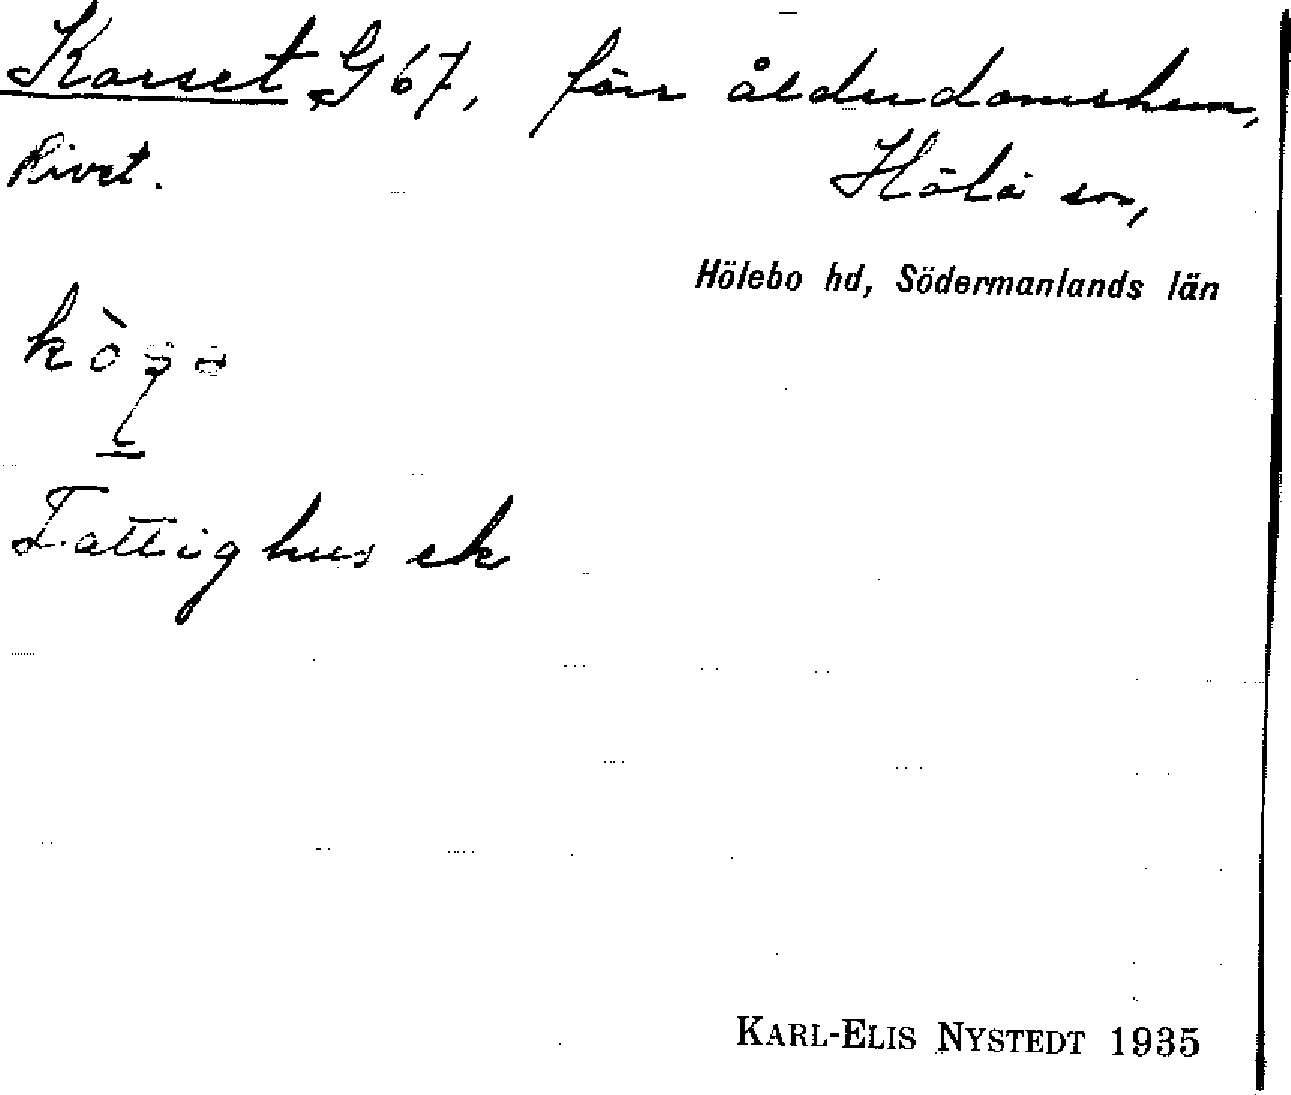 Korset G 67, förr ålderdomshem,
Rivet.
Hölö sn,
Hölebo hd, Södermanlands län
Fattighus ek
KARL-ELIS NYSTEDT 1935